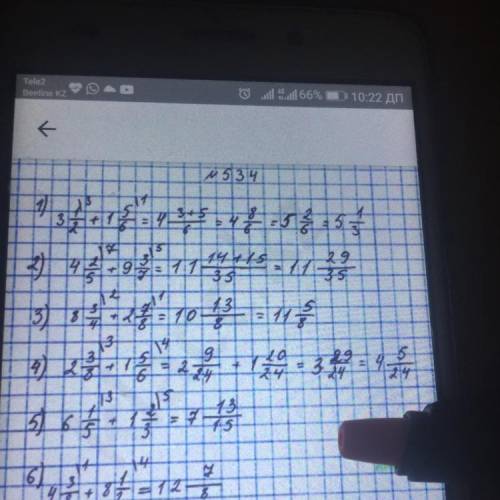 Tele2
Beeline KZ 66% 10:22 ДП
№534
1) 3 1/2 \3 + 1 5/6 \1 = 4 3+5/6 = 4 8/6 = 5 2/6 = 5 1/3
2) 4 2/5 \7 + 9 3/7 \5 = 11 14+15/35 = 11 29/35
3) 8 3/4 \2 + 2 7/8 \1 = 10 13/8 = 11 5/8
4) 2 3/8 \3 + 1 5/6 \4 = 2 9/24 + 1 20/24 = 3 29/24 = 4 5/24
5) 6 1/5 \3 + 1 2/3 \5 = 7 13/15
6) 4 3/8 \1 + 8 1/2 \4 = 12 7/8